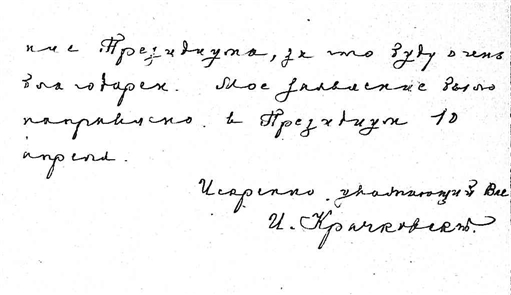 ние Президиума, за что буду очень
благодарен. Мое заявление было
направлено в Президиум 10
апреля.
Искренно уважающий Вас
И. Крачковский.